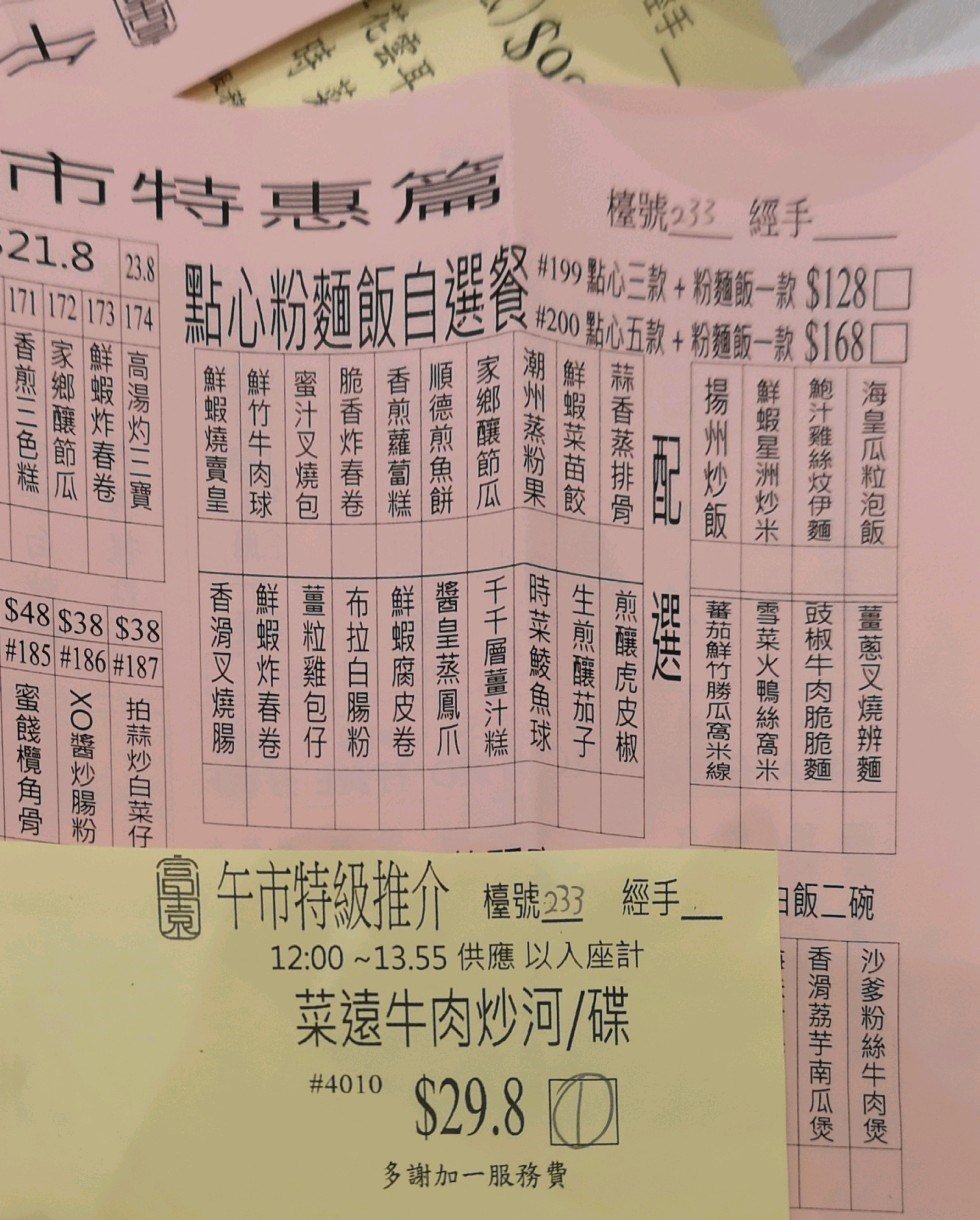 市特惠篇
檯號 233 經手
$21.8 23.8
171 172 173 174
香煎三色糕
家鄉釀節瓜
鮮蝦炸春卷
高湯灼三寶
點心粉麵飯自選餐
#199 點心三款 + 粉麵飯一款 $128
#200 點心五款 + 粉麵飯一款 $168
鮮蝦燒賣皇
鮮竹牛肉球
蜜汁叉燒包
脆香炸春卷
香煎蘿蔔糕
順德煎魚餅
家鄉釀節瓜
潮州蒸粉果
鮮蝦菜苗餃
蒜香蒸排骨
配選
揚州炒飯
鮮蝦星洲炒米
鮑汁雞絲炆伊麵
海皇瓜粒泡飯
$48 $38 $38
#185 #186 #187
蜜餞欖角骨
XO醬炒腸粉
拍蒜炒白菜仔
香滑叉燒腸
鮮蝦炸春卷
薑粒雞包仔
布拉白腸粉
鮮蝦腐皮卷
醬皇蒸鳳爪
千千層薑汁糕
時菜鯪魚球
生煎釀茄子
煎釀虎皮椒
蕃茄鮮竹勝瓜窩米線
雪菜火鴨絲窩米
豉椒牛肉脆脆麵
薑蔥叉燒辨麵
富臨 午市特級推介 檯號 233 經手
12:00 ~13.55 供應 以入座計
菜遠牛肉炒河/碟
#4010 $29.8 1
多謝加一服務費
白飯二碗
香滑荔芋南瓜煲
沙爹粉絲牛肉煲